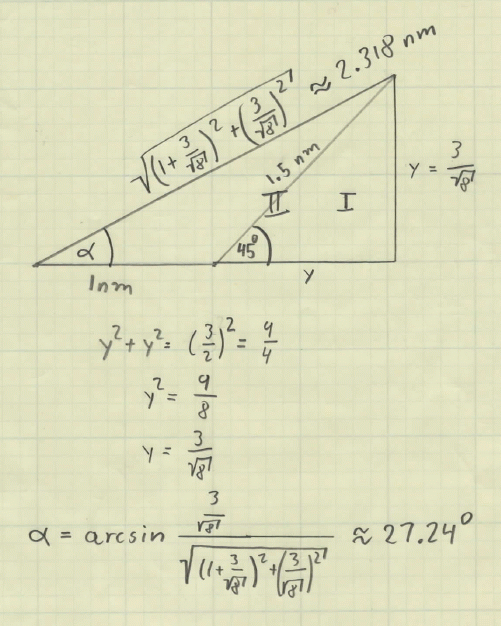 √((1+3/√8)²+(3/√8)²) ≈ 2.318 nm
1.5 nm
y = 3/√8
II
I
α
45°
1nm
y
y²+y² = (3/2)² = 9/4
y² = 9/8
y = 3/√8
α = arcsin (3/√8)/√((1+3/√8)²+(3/√8)²) ≈ 27.24°